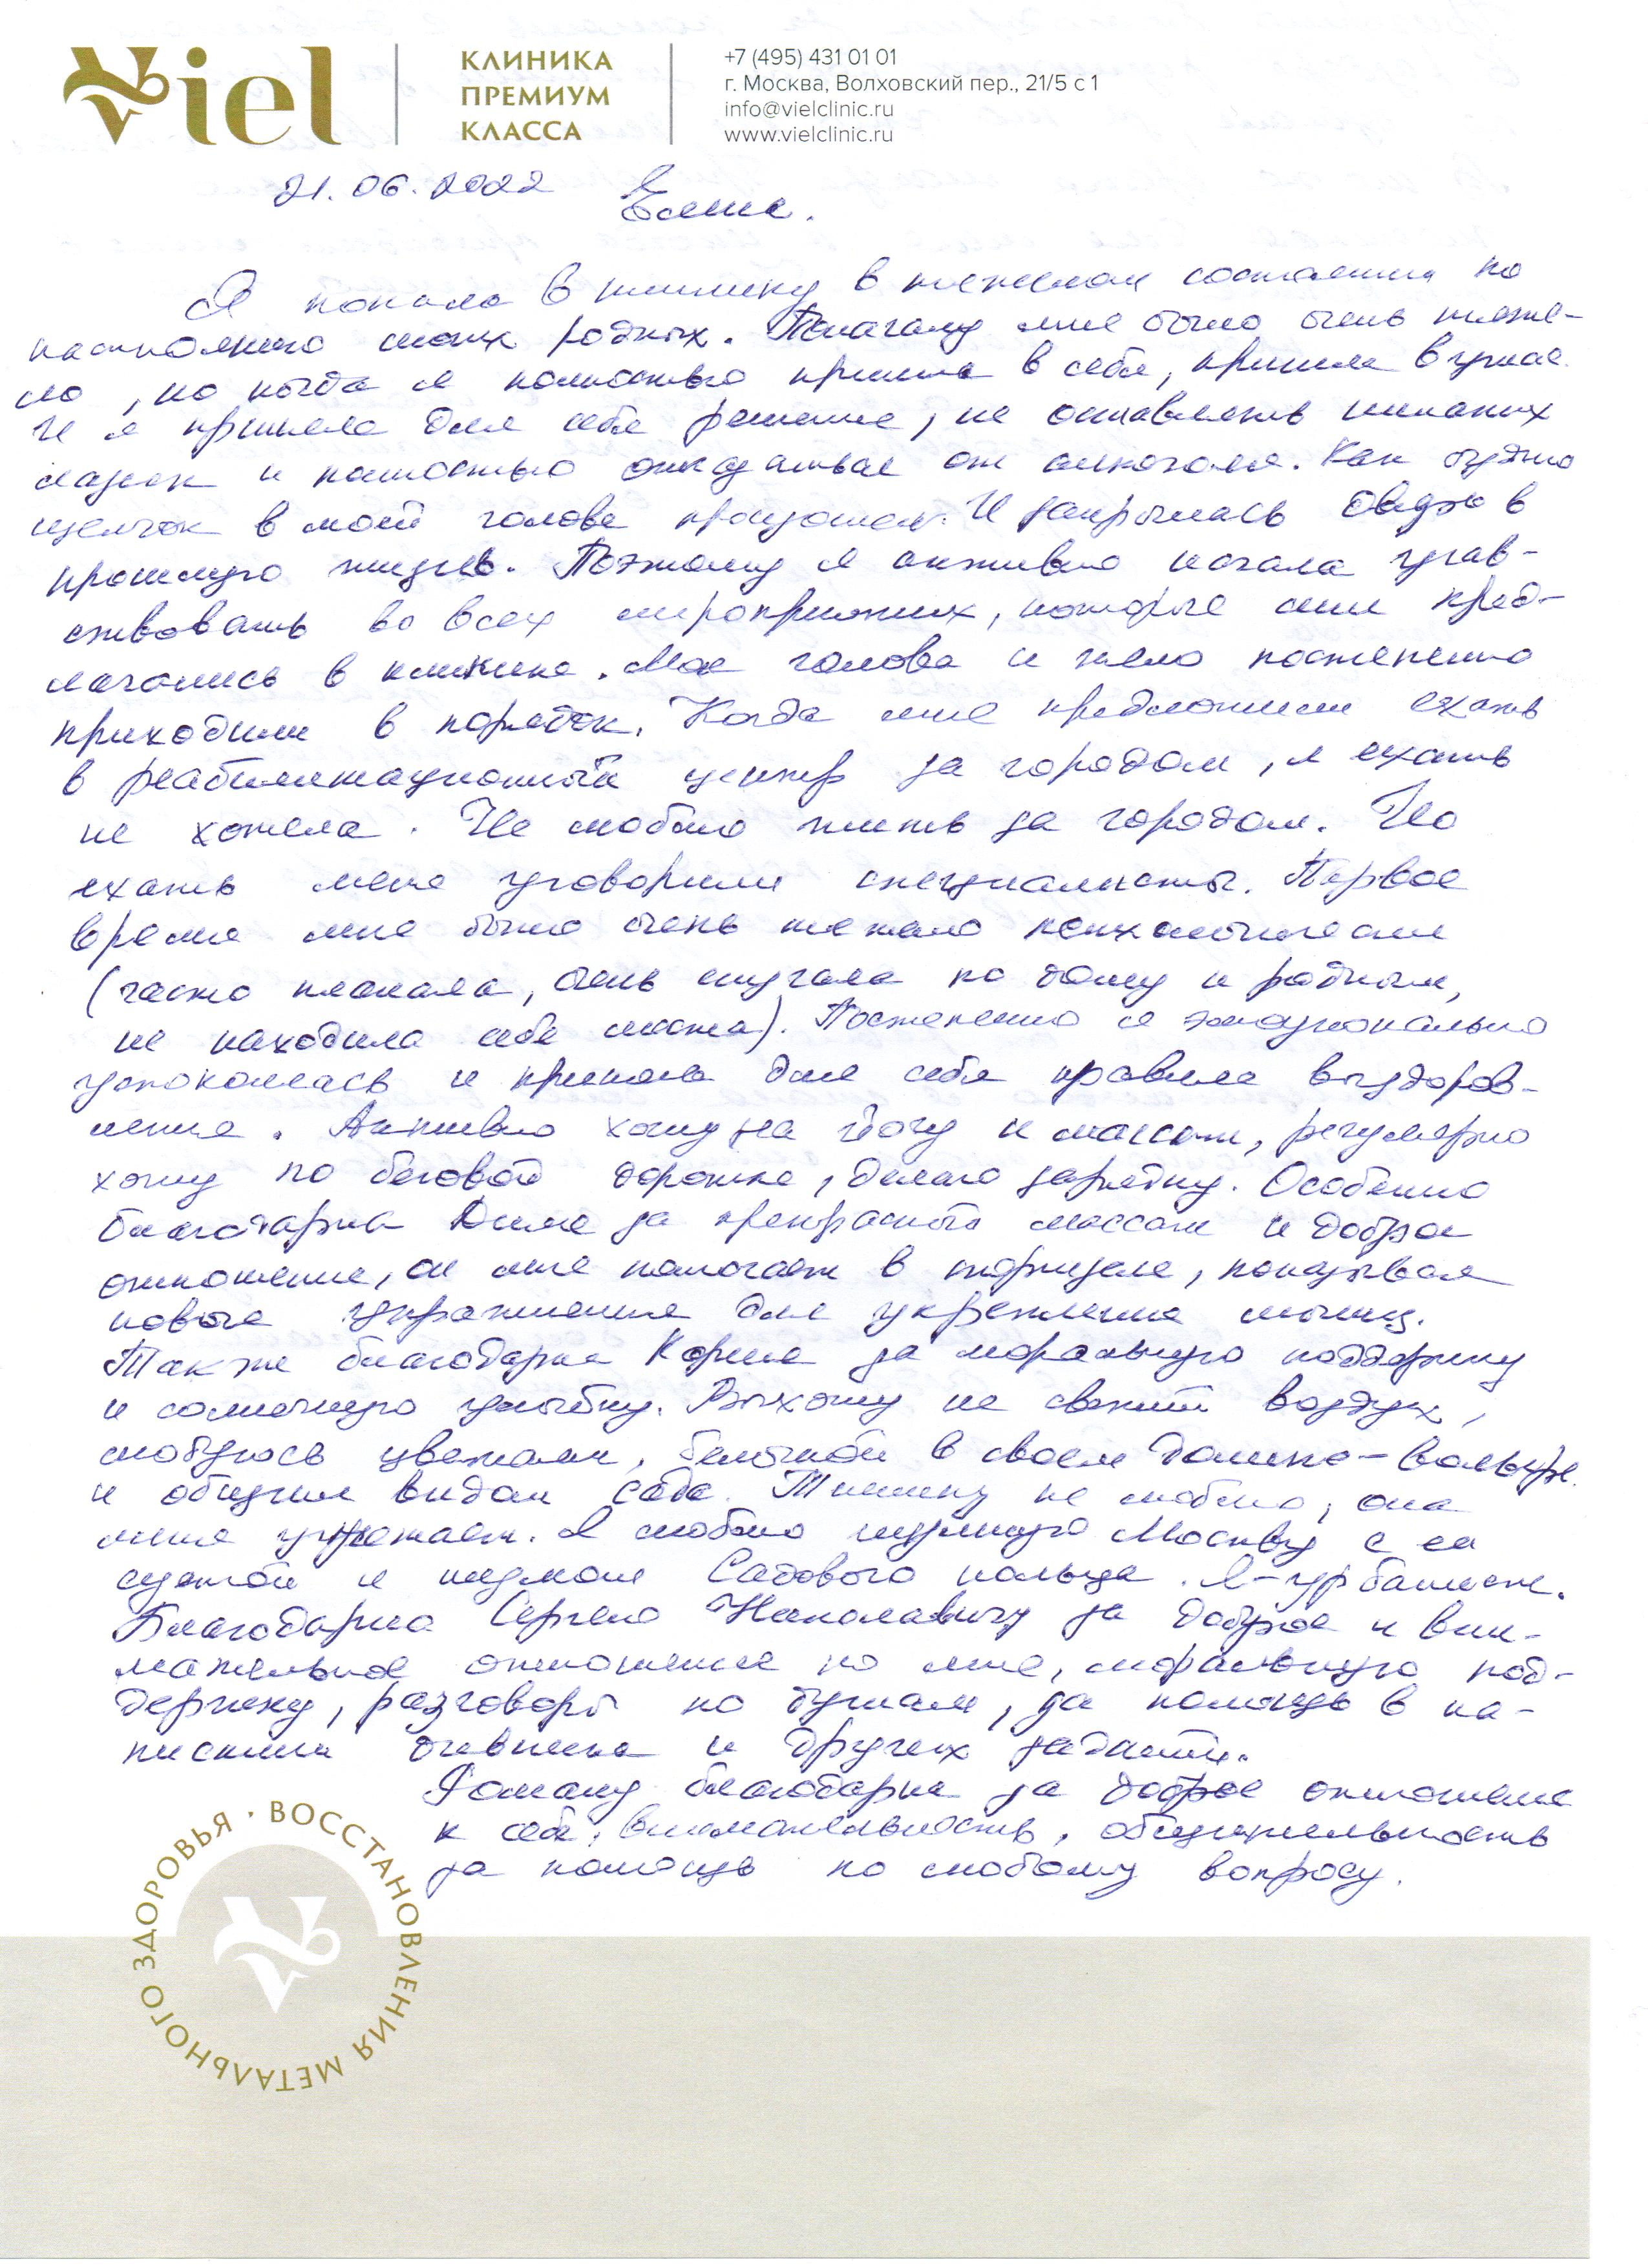 Viel
КЛИНИКА
ПРЕМИУМ
КЛАССА
+7 (495) 431 01 01
г. Москва, Волховский пер., 21/5 с 1
info@vielclinic.ru
www.vielclinic.ru
21.06.2022
Я попала в клинику в тяжелом состоянии по
настоянию моих родных. Поначалу мне было очень тяже-
ло, но когда я полностью пришла в себя, пришла в ужас.
И я приняла для себя решение, не оставлять никаких
лазеек и полностью отказаться от алкоголя. Как будто
щелчок в моей голове произошел. И закрылась дверь в
прошлую жизнь. Поэтому я активно начала учав-
ствовать во всех мероприятиях, которые мне пред-
лагались в клинике. Моя голова и тело постепенно
приходили в порядок. Когда мне предложили ехать
в реабилитационный центр за городом, я ехать
не хотела. Не люблю жить за городом. Но
ехать меня уговорили специалисты. Первое
время мне было очень тяжело психологически
(часто плакала, очень скучала по дому и родным,
не находила себе места). Постепенно я эмоционально
успокоилась и приняла для себя правила выздоров-
ления. Активно хожу на йогу и массаж, регулярно
хожу по беговой дорожке, делаю зарядку. Особенно
благодарна Диме за прекрасный массаж и доброе
отношение, он мне помогает в тренажерке, показывая
новые упражнения для укрепления мышц.
Также благодарна Карине за моральную поддержку
и солнечную улыбку. Выхожу на свежий воздух,
любуюсь цветами, белочкой в своем домике-вольере
и общим видом сада. Тишину не люблю, она
меня угнетает. Я люблю шумную Москву с её
суетой и шумом Садового кольца. Я-урбанист.
Благодарна Сергею Николаевичу за доброе и вни-
мательное отношение ко мне, моральную под-
держку, разговоры по душам, за помощь в на-
писании дневника и других заданий.
Роману благодарна за доброе отношение
к себе, внимательность, общительность
за помощь по любому вопросу.
ВОССТАНОВЛЕНИЯ МЕТАЛЬНОГО ЗДОРОВЬЯ ·